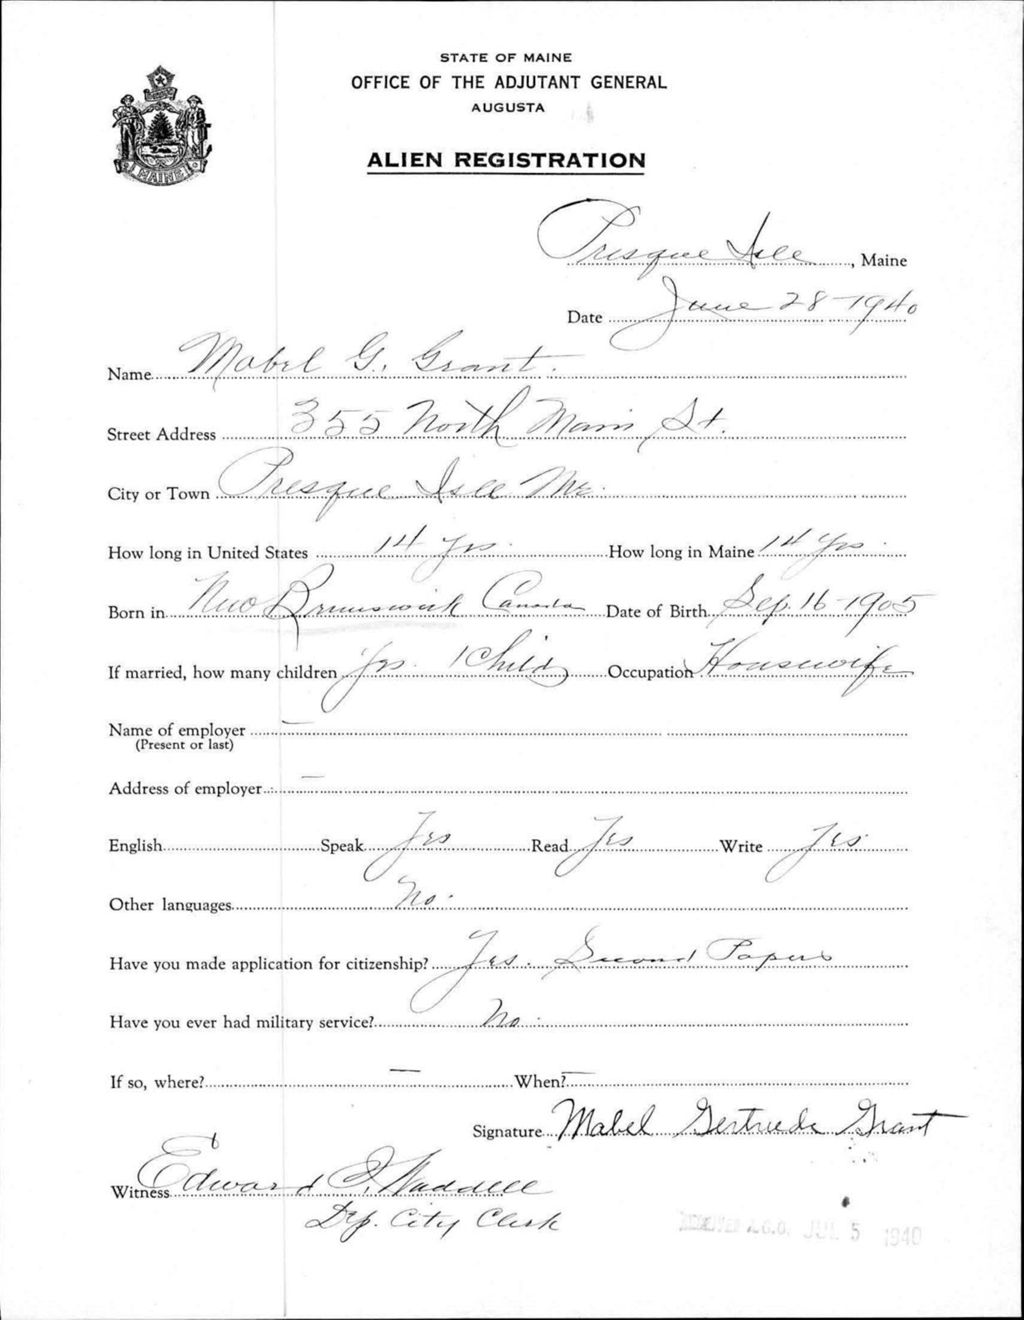 STATE OF MAINE
OFFICE OF THE ADJUTANT GENERAL
AUGUSTA
MAINE
ALIEN REGISTRATION
Presque Isle, Maine
Date June 28-1940
Name Mabel G. Grant.
Street Address 355 North Main St.
City or Town Presque Isle Me.
How long in United States 14 yrs. How long in Maine 14 yrs.
Born in New Brunswick Canada Date of Birth Sep. 16-1905
If married, how many children Yes. 1 Child Occupation Housewife
Name of employer —
(Present or last)
Address of employer —
English Speak Yes Read Yes Write Yes.
Other languages No.
Have you made application for citizenship? Yes. Second Papers
Have you ever had military service? No.
If so, where? — When? —
Signature Mabel Gertrude Grant
Witness Edward Waddell
Dep. City Clerk
A.G.O. JUL 5 1940